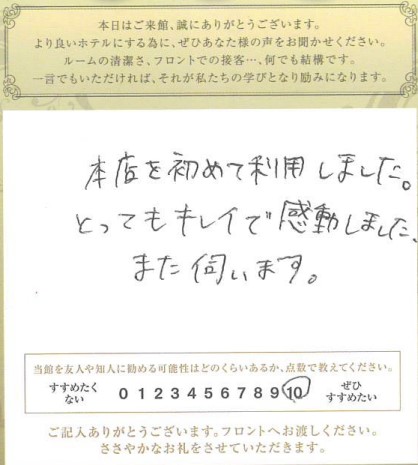 本日はご来館、誠にありがとうございます。
より良いホテルにする為に、ぜひあなた様の声をお聞かせください。
ルームの清潔さ、フロントでの接客…、何でも結構です。
一言でもいただければ、それが私たちの学びとなり励みになります。
本店を初めて利用しました。
とってもキレイで感動しました、
また伺います。
当館を友人や知人に勧める可能性はどのくらいあるか、点数で教えてください。
すすめたくない 0 1 2 3 4 5 6 7 8 9 10 ぜひすすめたい
ご記入ありがとうございます。フロントへお渡しください。
ささやかなお礼をさせていただきます。